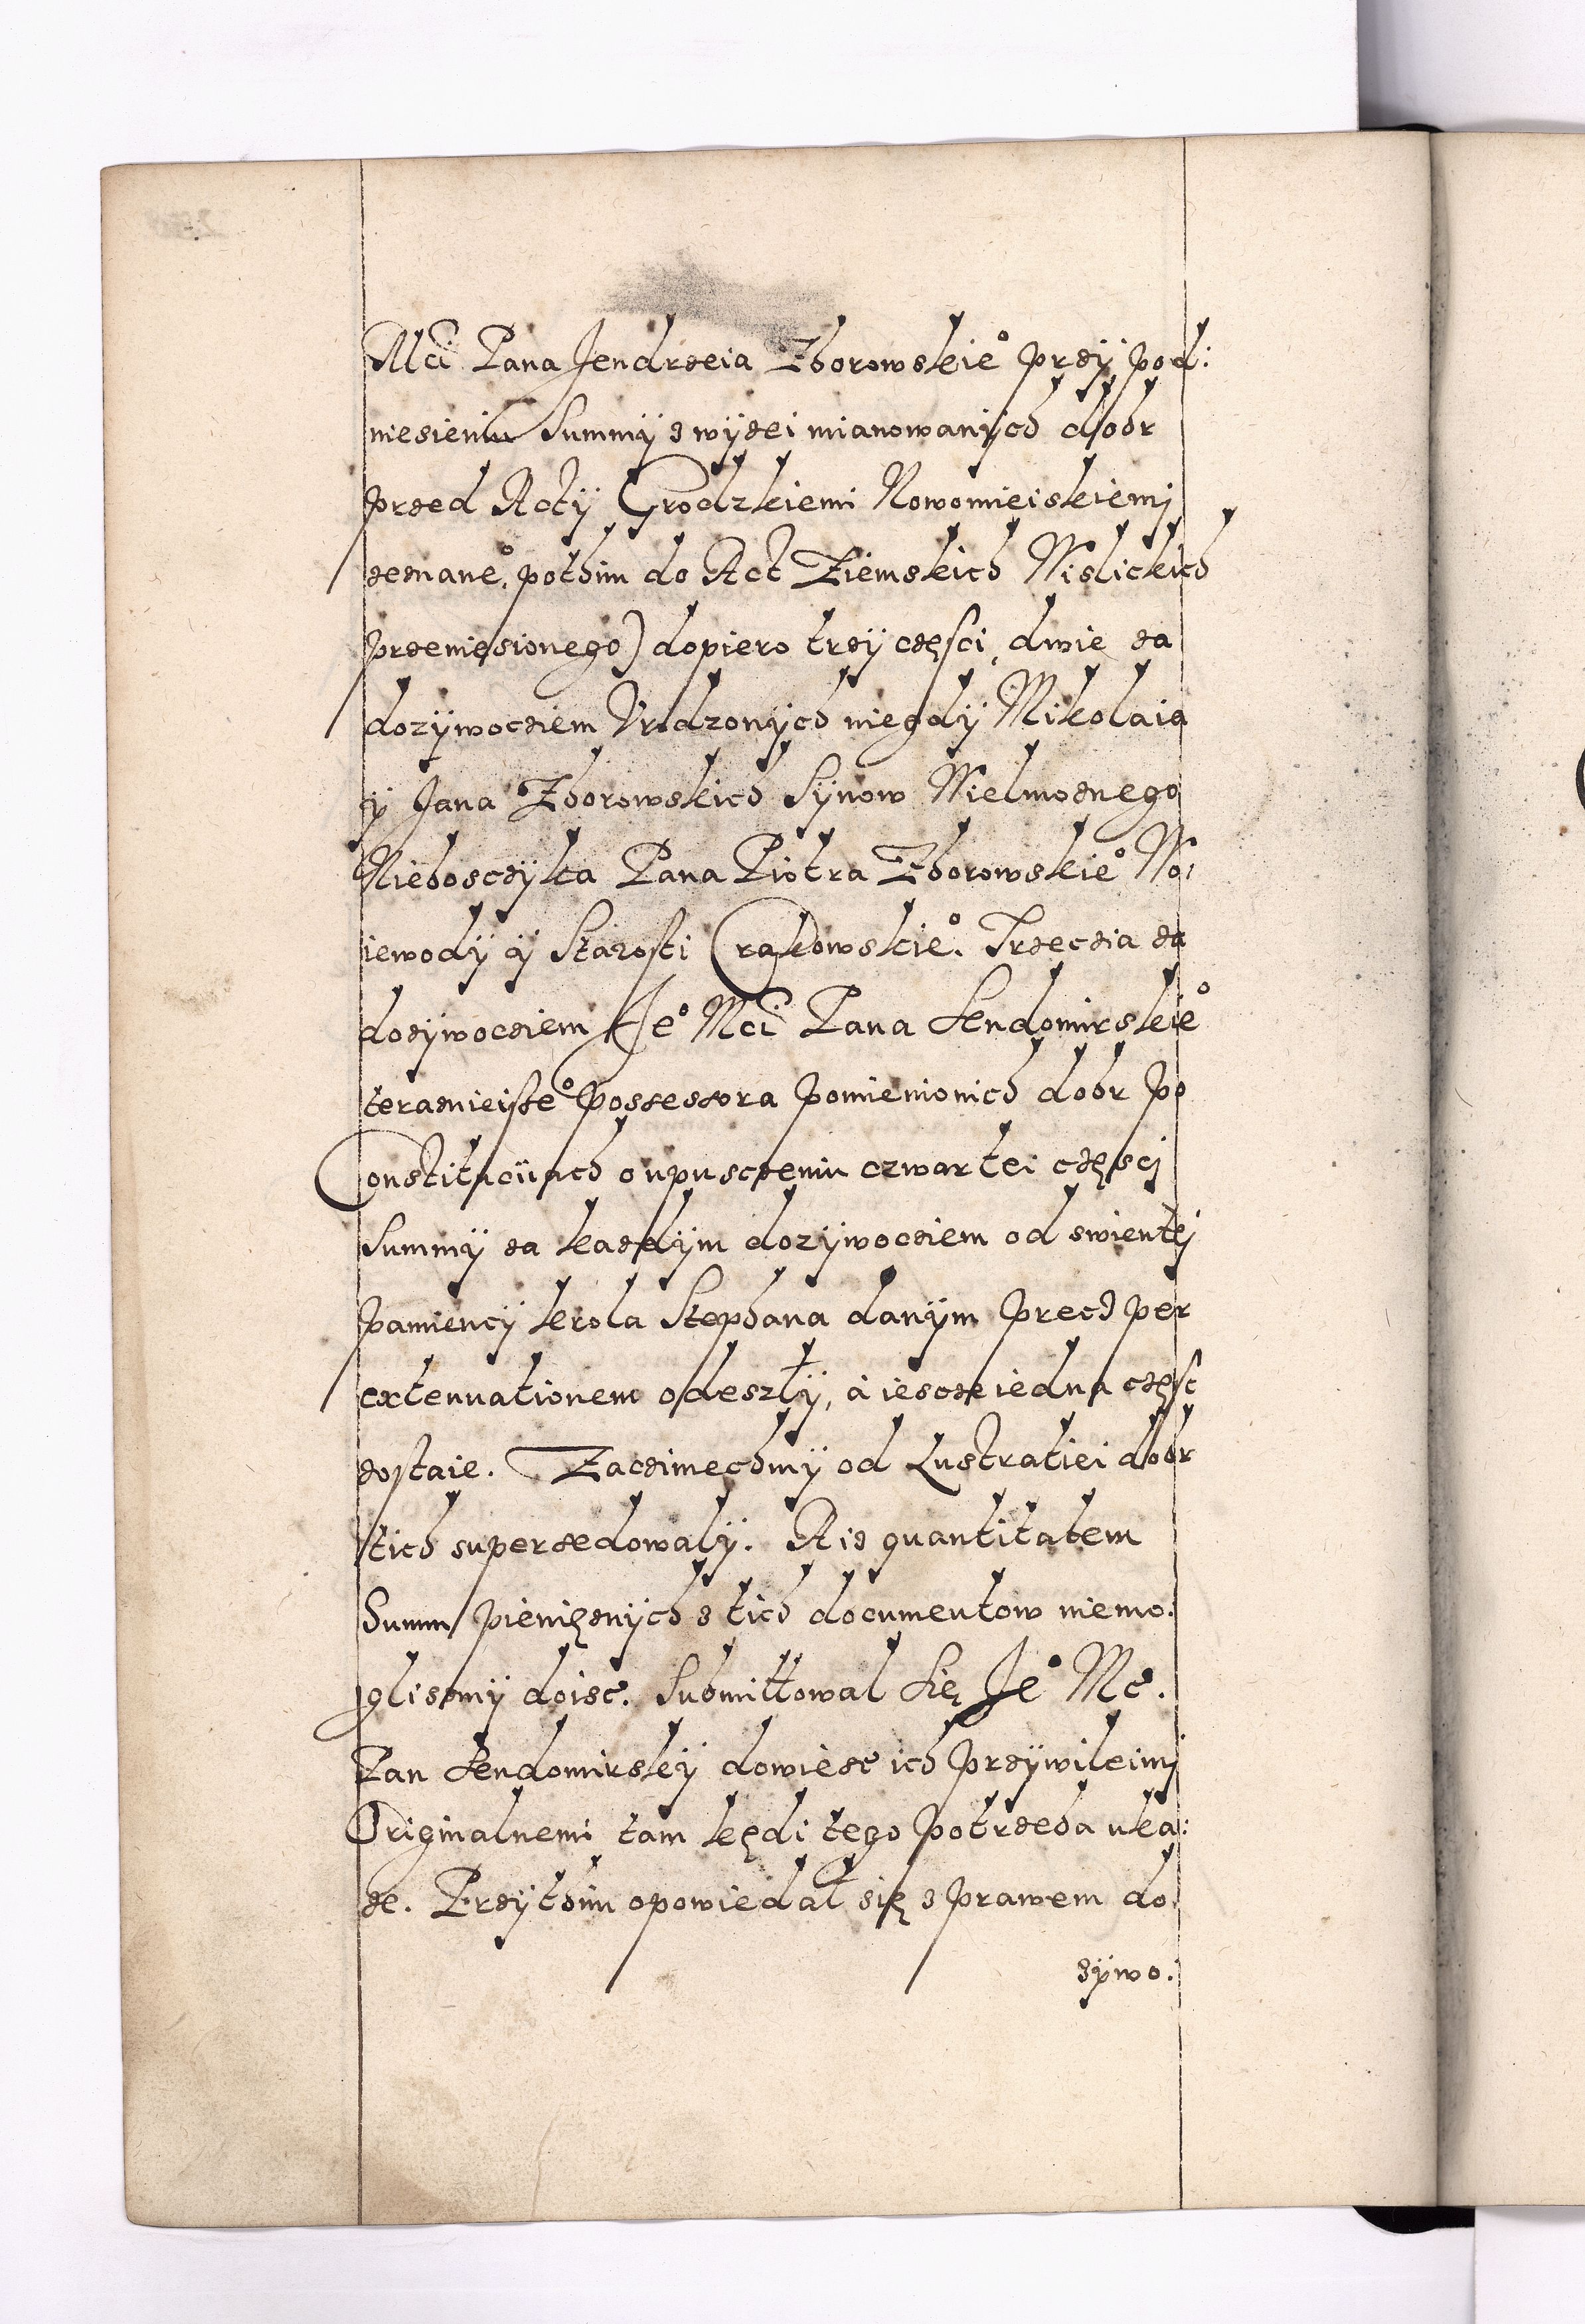 Mci Pana Jendrzeia Zborowskie° przÿ pod:
niesieniu Summÿ z wÿzei mianowanÿch dobr
przed Actÿ Grodzkiemi Nowomieiskiemi
zeznane°, pothim do Act Ziemskich Wislickich
przeniesionego) dopiero trzÿ częsci, dwie za
dozÿwocziem Vrodzonÿch niegdÿ Mikolaia
ÿ Jana Zborowskich Sÿnow Wielmoznego
Nieboszczÿka Pana Piotra Zborowskie° Wo:
iewodÿ ÿ Starosti Crakowskie°. Trzeczia za
dozÿwocziem Je° Mci Pana Sendomirskie°
teraznieisze° possessora pomienionich dobr po
Constitucÿach o upusczeniu czwartei częsci
Summÿ za kazdÿm dozÿwocziem od swientei
pamiencÿ krola Stephana danÿm precz per
extenuationem odeszłÿ, á iescze iedna częsc
zostaie. Zaczimechmÿ od Lustratiei dobr
tich supersedowalÿ. A iz quantitatem
Summ pienięznÿch z tich documentow niemo:
glismÿ doisc. Submittowal się Je° Mc.
Pan Sendomirskÿ dowiesc ich przÿwileimi
Originalnemi tam kędi tego potrzeba uka:
ze. Przÿthim opowiedał się z prawem do
zÿwo: